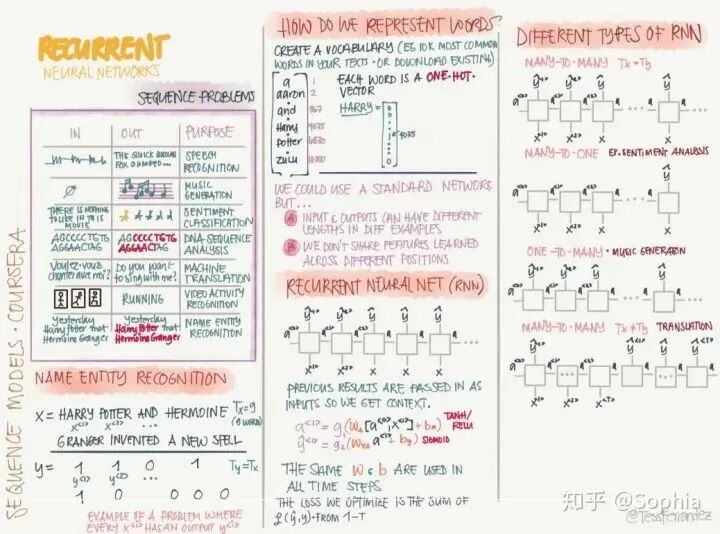 RECURRENT
NEURAL NETWORKS
SEQUENCE PROBLEMS
IN OUT PURPOSE
THE QUICK BROWN FOX JUMPED... SPEECH RECOGNITION
∅ MUSIC GENERATION
THERE IS NOTHING TO LIKE IN THIS MOVIE SENTIMENT CLASSIFICATION
AGCCCCTGTG AGGAACTAG AGCCCCTGTG AGGAACTAG DNA-SEQUENCE ANALYSIS
Voulez-vous chanter avec moi? Do you want to sing with me? MACHINE TRANSLATION
RUNNING VIDEO ACTIVITY RECOGNITION
Yesterday Harry Potter met Hermoine Granger Yesterday Harry Potter met Hermoine Granger NAME ENTITY RECOGNITION
SEQUENCE MODELS · COURSERA
NAME ENTITY RECOGNITION
X = HARRY POTTER AND HERMOINE Tx=9
x<1> x<2> ... (9 WORDS)
GRANGER INVENTED A NEW SPELL
y = 1 1 0 1 Ty=Tx
y<1> y<2> ...
1 0 0 0 0
EXAMPLE OF A PROBLEM WHERE
EVERY x<i> HAS AN OUTPUT y<i>
HOW DO WE REPRESENT WORDS?
CREATE A VOCABULARY (EG 10K MOST COMMON
WORDS IN YOUR TEXTS - OR DOWNLOAD EXISTING)
a 1
aaron 2
and 367
Harry 4075
Potter 6830
zulu 10000
EACH WORD IS A ONE-HOT-
VECTOR
HARRY =
4075
WE COULD USE A STANDARD NETWORK
BUT...
A INPUT & OUTPUTS CAN HAVE DIFFERENT
LENGTHS IN DIFF EXAMPLES
B WE DON'T SHARE FEATURES LEARNED
ACROSS DIFFERENT POSITIONS
RECURRENT NEURAL NET (RNN)
PREVIOUS RESULTS ARE PASSED IN AS
INPUTS SO WE GET CONTEXT.
TANH/
RELU
SIGMOID
THE SAME W & b ARE USED IN
ALL TIME STEPS
THE LOSS WE OPTIMIZE IS THE SUM OF
ℒ(ŷ,y) FROM 1-T
DIFFERENT TYPES OF RNN
MANY-TO-MANY Tx=Ty
MANY-TO-ONE EX. SENTIMENT ANALYSIS
ONE-TO-MANY · MUSIC GENERATION
MANY-TO-MANY Tx≠Ty TRANSLATION
知乎 @Sophia
@TessFerrandez